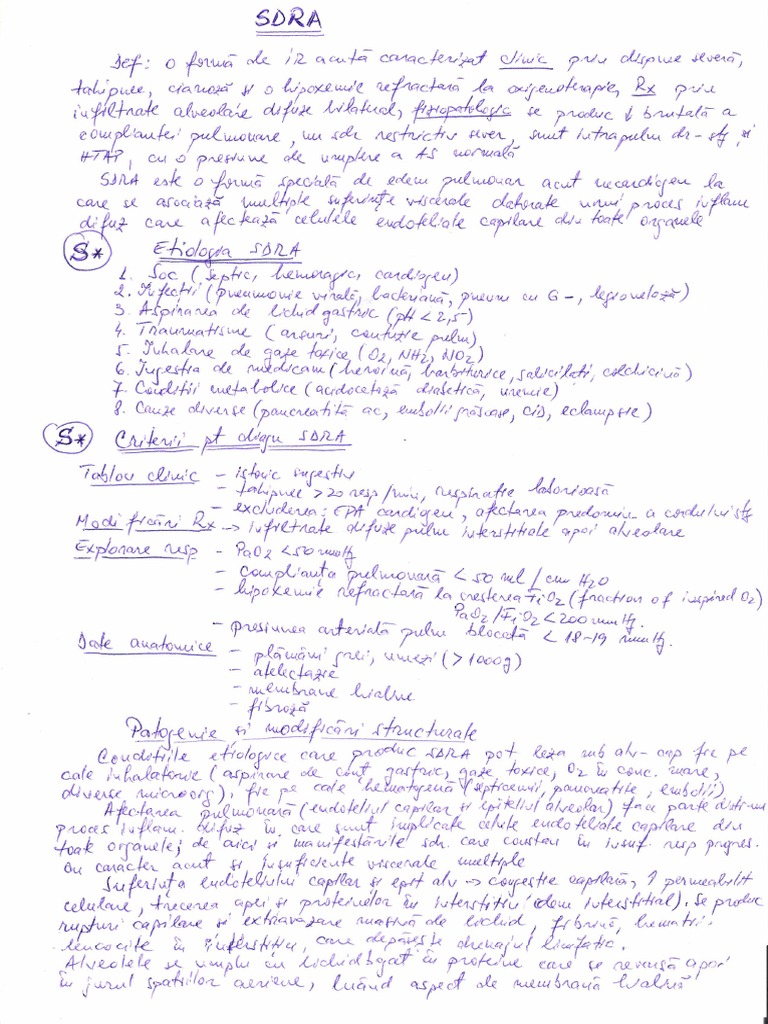 SDRA
Def: o formă de IR acută caracterizat clinic prin dispnee severă,
tahipnee, cianoză și o hipoxemie refractară la oxigenoterapie, Rx prin
infiltrate alveolare difuze bilateral, fiziopatologic se produc ↓ brutală a
complianței pulmonare, un sdr restrictiv sever, șunt intrapulm dr-stg și
HTAP, cu o presiune de umplere a AS normală
SDRA este o formă specială de edem pulmonar acut necardiogen la
care se asociază multiple suferințe viscerale datorate unui proces inflam
difuz care afectează celulele endoteliale capilare din toate organele
S* Etiologia SDRA
1. Șoc (septic, hemoragic, cardiogen)
2. Infecții (pneumonie virală, bacteriană, pneum cu G-, legioneloză)
3. Aspirarea de lichid gastric (pH < 2,5)
4. Traumatisme (arsuri, contuzie pulm)
5. Inhalare de gaze toxice (O2, NH2, NO2)
6. Ingestia de medicam (heroină, barbiturice, salicilati, colchicină)
7. Condiții metabolice (acidocetoză diabetică, uremie)
8. Cauze diverse (pancreatită ac, embolii grăsoase, CID, eclampsie)
S* Criterii pt diagn SDRA
Tablou clinic - istoric sugestiv
- tahipnee > 20 resp/min, respirație laborioasă
- excluderea: EPA cardigen, afectarea predomin- a cordului stg
Modificări Rx → infiltrate difuze pulm interstitiale apoi alveolare
Explorare resp - PaO2 < 50 mmHg
- complianța pulmonară < 50 ml/cm H2O
- hipoxemie refractară la creșterea FiO2 (fraction of inspired O2)
PaO2/FiO2 < 200 mmHg.
- presiunea arterială pulm blocată < 18-19 mmHg.
Date anatomice - plămâni grei, umezi (> 1000g)
- atelectazie
- membrane hialine
- fibroză
Patogenie și modificări structurale
Condițiile etiologice care produc SDRA pot leza mb alv-cap fie pe
cale inhalatorie (aspirare de conț gastric, gaze toxice, O2 în conc. mare,
diverse microorg), fie pe cale hematogenă (septicemii, pancreatite, embolii)
Afectarea pulmonară (endoteliul capilar și epiteliul alveolar) face parte dintr-un
proces inflam. difuz în care sunt implicate celule endoteliale capilare din
toate organele; de aici și manifestările sdr. care constau în insuf. resp progres.
cu caracter acut și insuficiente viscerale multiple
Suferința endoteliului capilar și epit alv → congestie capilară, ↑ permeabilit
celulare, trecerea apei și proteinelor în interstițiu (edem interstitial). Se produc
rupturi capilare și extravazare masivă de lichid, fibrină, hematii,
leucocite în interstițiu, care depășește drenajul limfatic.
Alveolele se umplu cu lichid bogat în proteine care se revarsă apoi
în jurul spațiilor aeriene, luând aspect de membrană hialină